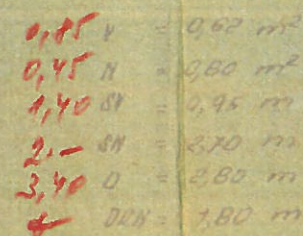 0,85 N = 0,62 m²
0,45 N = 0,60 m²
1,40 SN = 0,95 m
2.- SN = 2,70 m
3,40 D = 2,80 m
DDN = 1,80 m